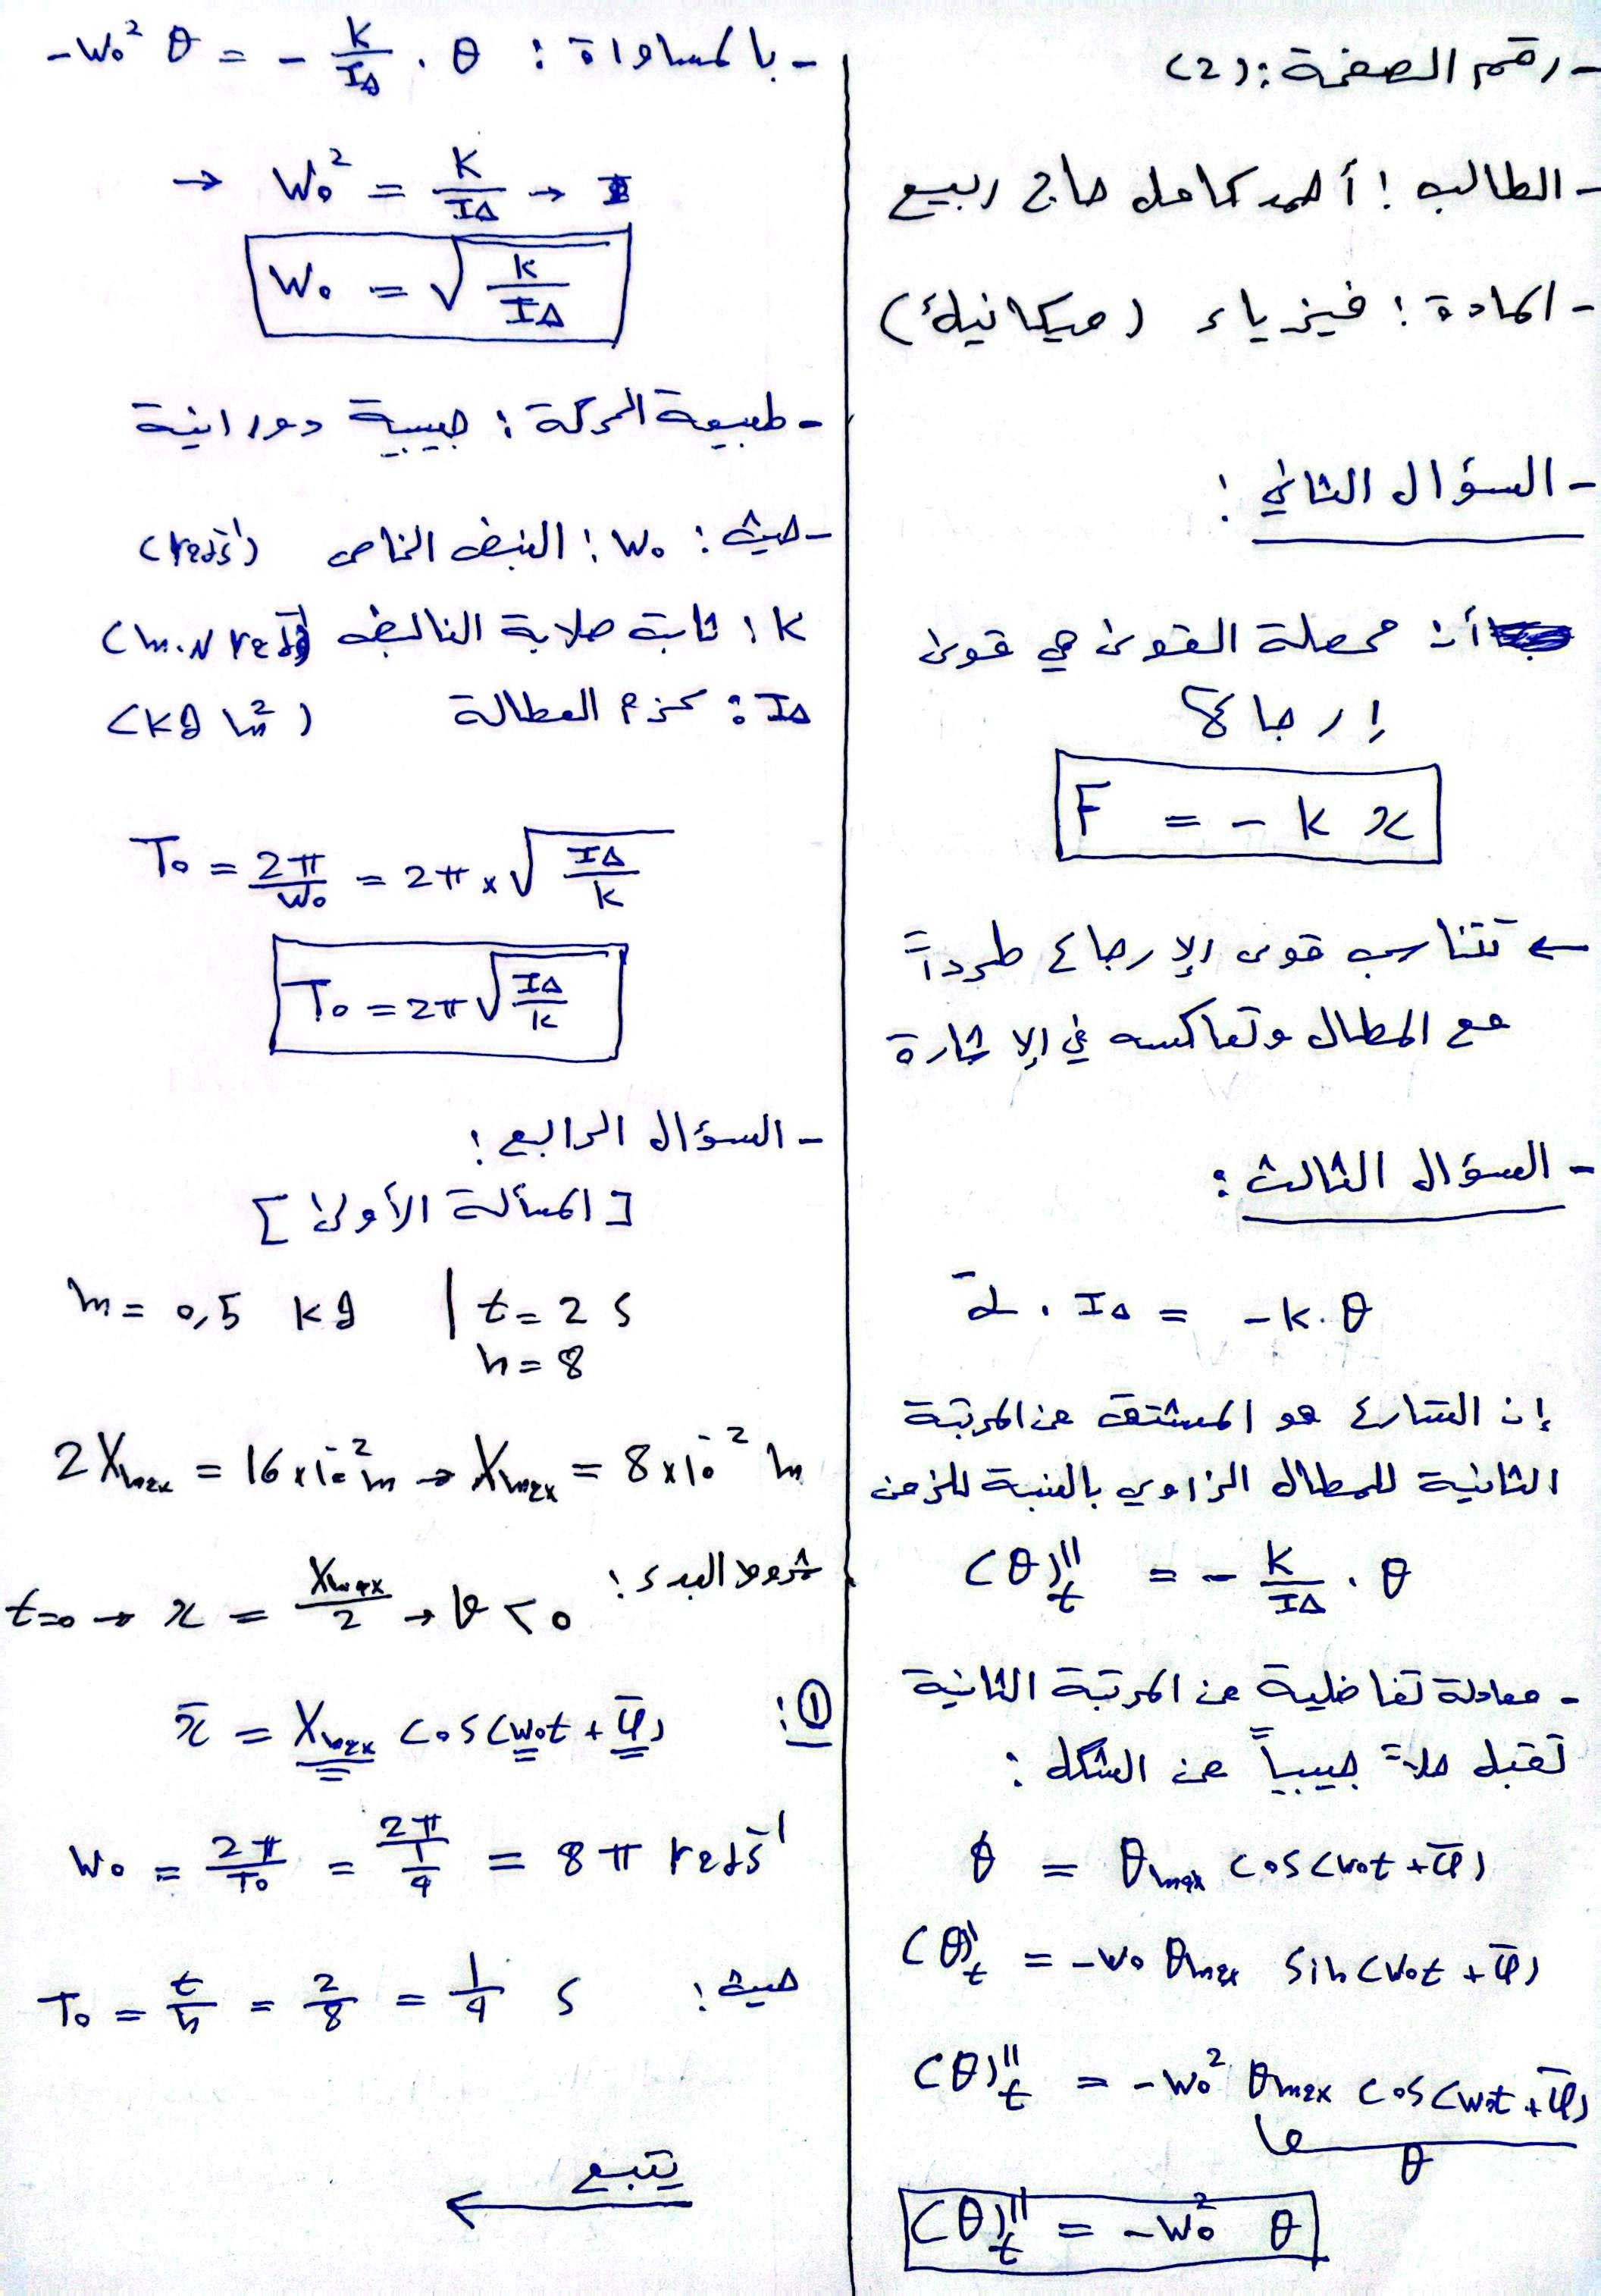 - رقم الصفحة: (2)
- الطالب: أحمد كامل حاج ربيع
- المادة: فيزياء (ميكانيك)
- السؤال الثاني:
أن محصلة القوى هي قوى
إرجاع
F = - k x
← تتناسب قوى الإرجاع طرداً
مع المطال وتعاكسه في الإشارة
- السؤال الثالث:
ᾱ . I∆ = -k . θ
إن التسارع هو المشتق من المرتبة
الثانية للمطال الزاوي بالنسبة للزمن
(θ)''t = - k/I∆ . θ
- معادلة تفاضلية من المرتبة الثانية
تقبل حلاً جيبياً من الشكل:
θ = θmax cos(w₀t + φ̄)
(θ)'t = -w₀ θmax sin(w₀t + φ̄)
(θ)''t = -w₀² θmax cos(w₀t + φ̄)
θ
(θ)''t = -w₀² θ
- بالمساواة: -w₀² θ = - k/I∆ . θ
→ w₀² = k/I∆ →
w₀ = √(k/I∆)
- طبيعة الحركة: جيبية دورانية
- حيث: w₀: النبض الخاص (rad s⁻¹)
k: ثابت صلابة النابض (m.N rad⁻¹)
I∆: عزم العطالة (kg m²)
T₀ = 2π/w₀ = 2π × √(I∆/k)
T₀ = 2π √(I∆/k)
- السؤال الرابع:
[المسألة الأولى]
m = 0,5 kg | t = 2 s
n = 8
2Xmax = 16 × 10⁻² m → Xmax = 8 × 10⁻² m
شروط البدء: t=0 → x = Xmax/2 → v < 0
①: x̄ = Xmax cos(w₀t + φ̄)
w₀ = 2π/T₀ = 2π/(1/4) = 8π rad s⁻¹
حيث: T₀ = t/n = 2/8 = 1/4 s
يتبع ←